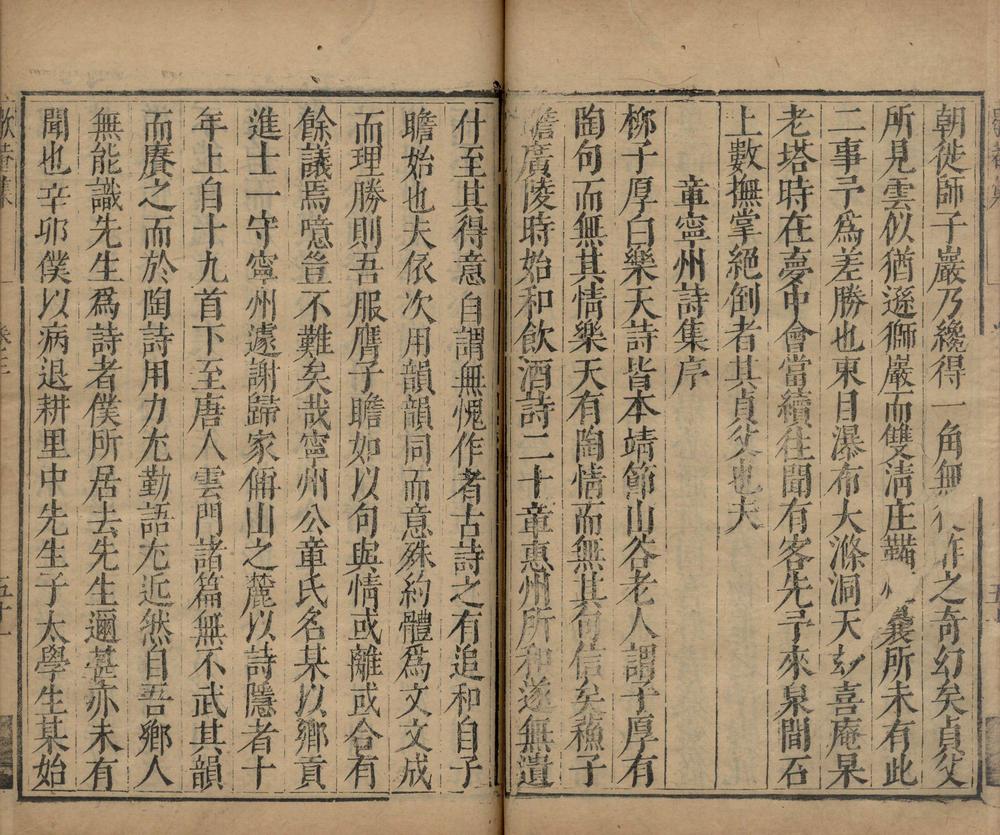 朝從師子巖乃纔得一角無之奇幻矣貞父
所見雲似猶遜獅巖而雙清庄所未有此
二事予爲差勝也東目瀑布大滌洞天刼喜庵杲
老塔時在夢中會當續往聞有客先予來泉間石
上數撫掌絕倒者其貞父也夫
童寧州詩集序
栁子厚白樂天詩皆本靖節山谷老人謂子厚有
陶句而無其情樂天有陶情而無其句信矣蘇子
瞻廣陵時始和飲酒詩二十章惠州所和遂無遺
什至其得意自謂無愧作者古詩之有追和自子
瞻始也夫依次用韻韻同而意殊約體爲文文成
而理勝則吾服膺子瞻如以句與情或離或合有
餘議焉噫豈不難矣哉寧州公童氏名某以鄉貢
進士一守寧州遽謝歸家偁山之麓以詩隱者十
年上自十九首下至唐人雲門諸篇無不武其韻
而賡之而於陶詩用力尤勤語尤近然自吾鄉人
無能識先生爲詩者僕所居去先生邇甚亦未有
聞也辛卯僕以病退耕里中先生子太學生某始
歇菴集
卷三
五十一